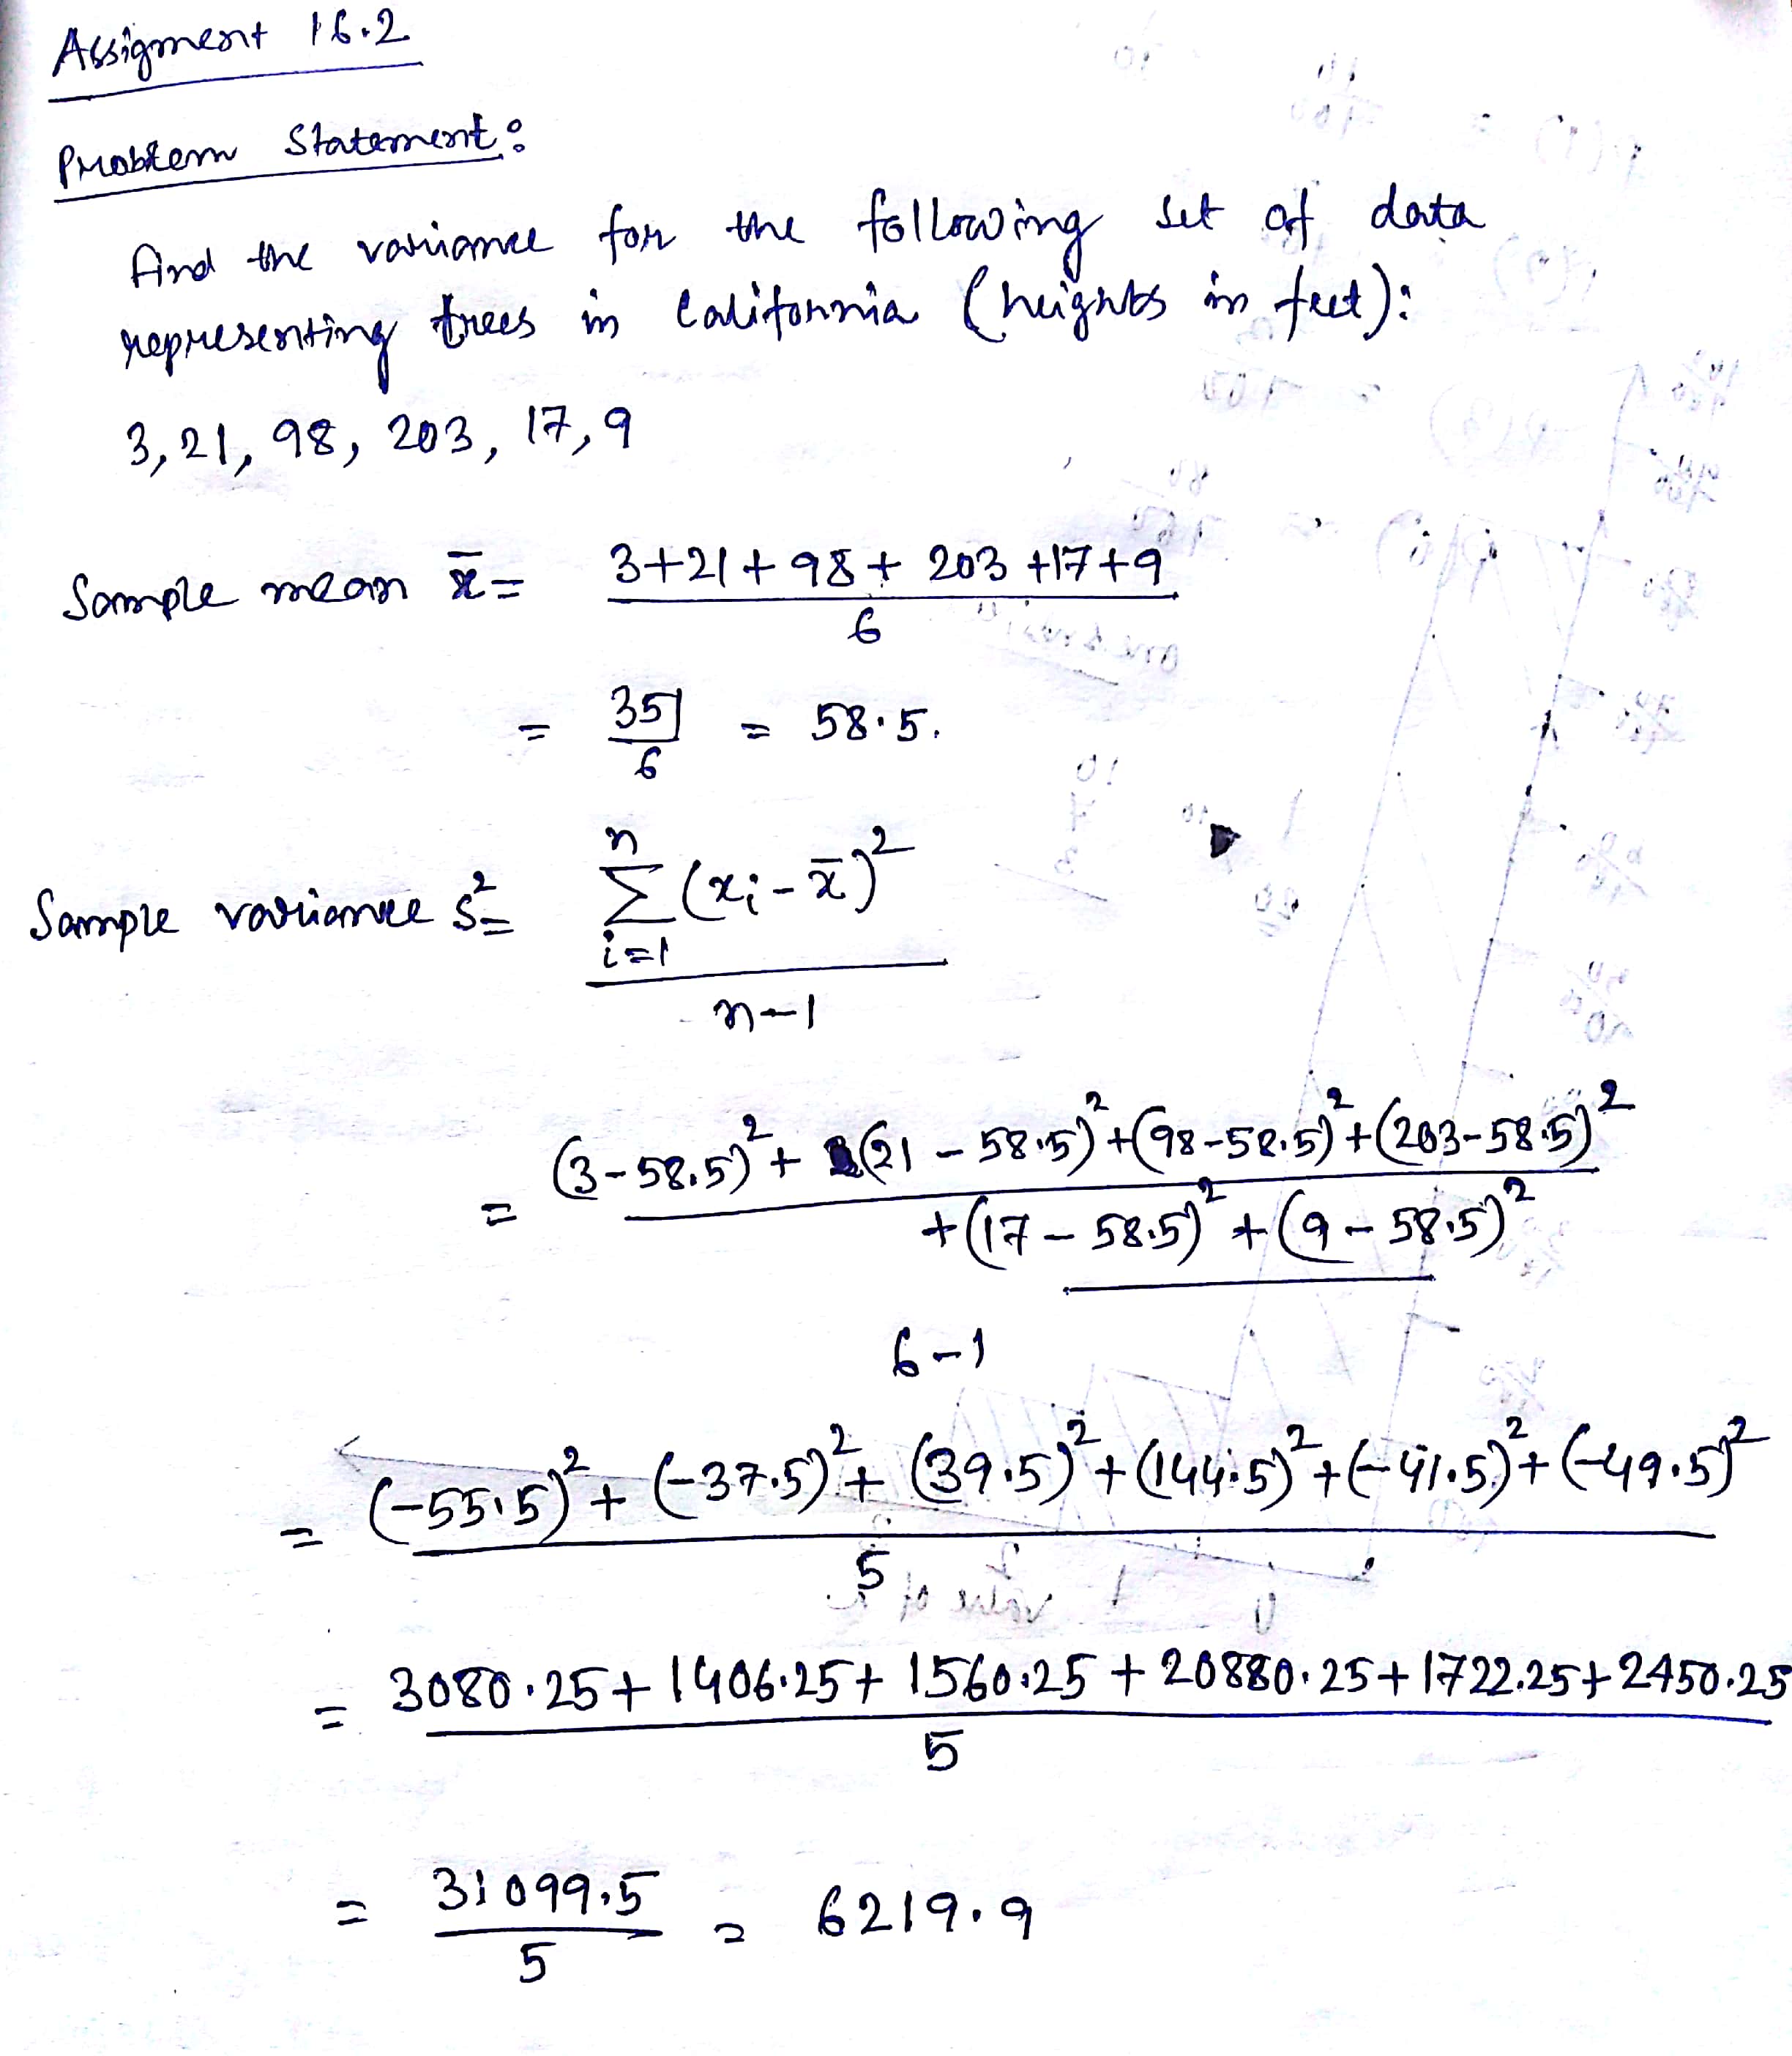 Assigment 16.2
Problem Statement:
find the variance for the following set of data
representing trees in California (heights in feet):
3, 21, 98, 203, 17, 9
Sample mean x̄ = 3+21+98+203+17+9 / 6
= 351 / 6 = 58.5.
Sample variance s² = Σ (i=1 to n) (xᵢ - x̄)² / n-1
= (3-58.5)² + (21-58.5)² + (98-58.5)² + (203-58.5)²
+ (17-58.5)² + (9-58.5)²
6-1
= (-55.5)² + (-37.5)² + (39.5)² + (144.5)² + (-41.5)² + (-49.5)² / 5
= 3080.25 + 1406.25 + 1560.25 + 20880.25 + 1722.25 + 2450.25 / 5
= 31099.5 / 5 = 6219.9